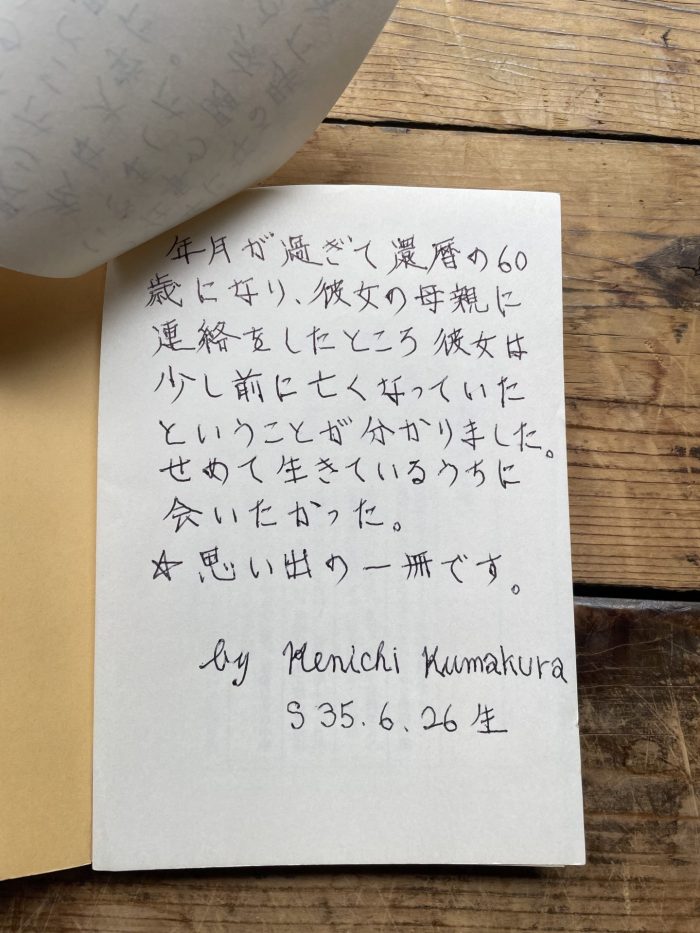 年月が過ぎて還暦の60
歳になり、彼女の母親に
連絡をしたところ彼女は
少し前に亡くなっていた
ということが分かりました。
せめて生きているうちに
会いたかった。
☆思い出の一冊です。
by Kenichi Kumakura
S 35.6.26生